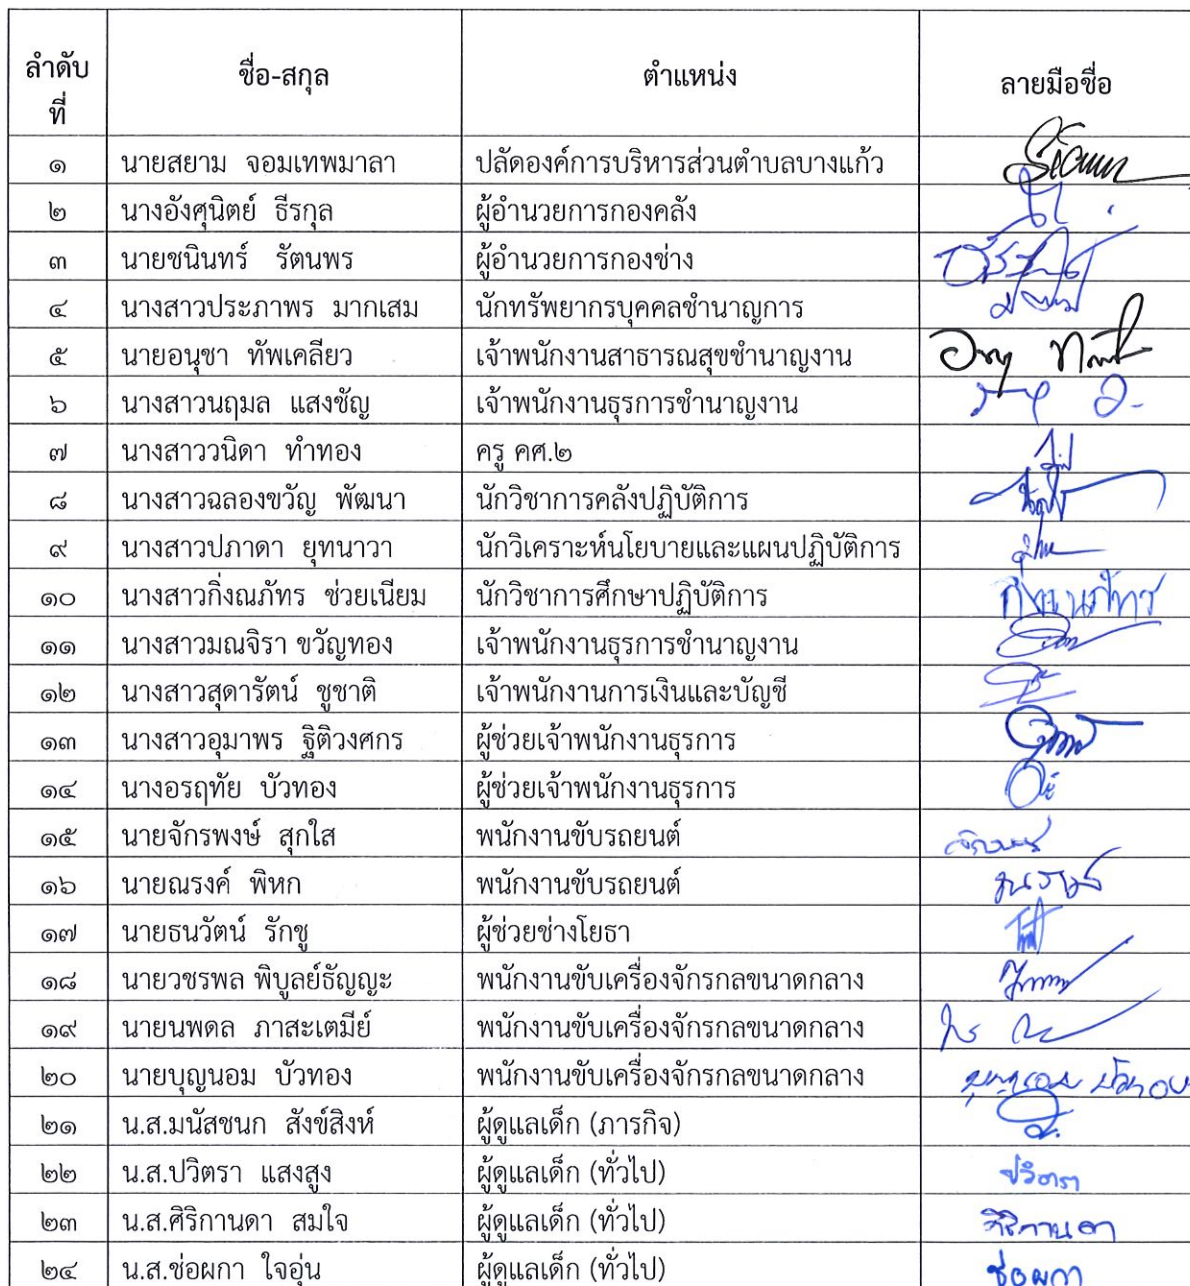 ลำดับ ชื่อ-สกุล ตำแหน่ง ลายมือชื่อ
ที่
๑ นายสยาม จอมเทพมาลา ปลัดองค์การบริหารส่วนตำบลบางแก้ว
๒ นางอังศุนิตย์ ธีรกุล ผู้อำนวยการกองคลัง
๓ นายชนินทร์ รัตนพร ผู้อำนวยการกองช่าง
๔ นางสาวประภาพร มากเสม นักทรัพยากรบุคคลชำนาญการ
๕ นายอนุชา ทัพเคลียว เจ้าพนักงานสาธารณสุขชำนาญงาน
๖ นางสาวนฤมล แสงชัญ เจ้าพนักงานธุรการชำนาญงาน
๗ นางสาววนิดา ทำทอง ครู คศ.๒
๘ นางสาวฉลองขวัญ พัฒนา นักวิชาการคลังปฏิบัติการ
๙ นางสาวปภาดา ยุทนาวา นักวิเคราะห์นโยบายและแผนปฏิบัติการ
๑๐ นางสาวกิ่งณภัทร ช่วยเนียม นักวิชาการศึกษาปฏิบัติการ
๑๑ นางสาวมณจิรา ขวัญทอง เจ้าพนักงานธุรการชำนาญงาน
๑๒ นางสาวสุดารัตน์ ชูชาติ เจ้าพนักงานการเงินและบัญชี
๑๓ นางสาวอุมาพร ฐิติวงศกร ผู้ช่วยเจ้าพนักงานธุรการ
๑๔ นางอรฤทัย บัวทอง ผู้ช่วยเจ้าพนักงานธุรการ
๑๕ นายจักรพงษ์ สุกใส พนักงานขับรถยนต์
๑๖ นายณรงค์ พิหก พนักงานขับรถยนต์
๑๗ นายธนวัตน์ รักชู ผู้ช่วยช่างโยธา
๑๘ นายวชรพล พิบูลย์ธัญญะ พนักงานขับเครื่องจักรกลขนาดกลาง
๑๙ นายนพดล ภาสะเตมีย์ พนักงานขับเครื่องจักรกลขนาดกลาง
๒๐ นายบุญนอม บัวทอง พนักงานขับเครื่องจักรกลขนาดกลาง
๒๑ น.ส.มนัสชนก สังข์สิงห์ ผู้ดูแลเด็ก (ภารกิจ)
๒๒ น.ส.ปวิตรา แสงสูง ผู้ดูแลเด็ก (ทั่วไป)
๒๓ น.ส.ศิริกานดา สมใจ ผู้ดูแลเด็ก (ทั่วไป) ศิริกานดา
๒๔ น.ส.ช่อผกา ใจอุ่น ผู้ดูแลเด็ก (ทั่วไป) ช่อผกา